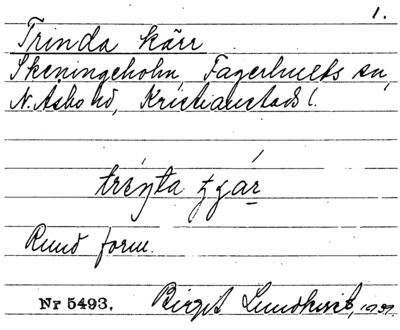 1.
Trinda kärr
Skäningeholm, Fagerhults sn,
N. Åsbo hd, Kristianstads l.
Rund form.
Nr 5493. Birgit Lundkvist, 1939.